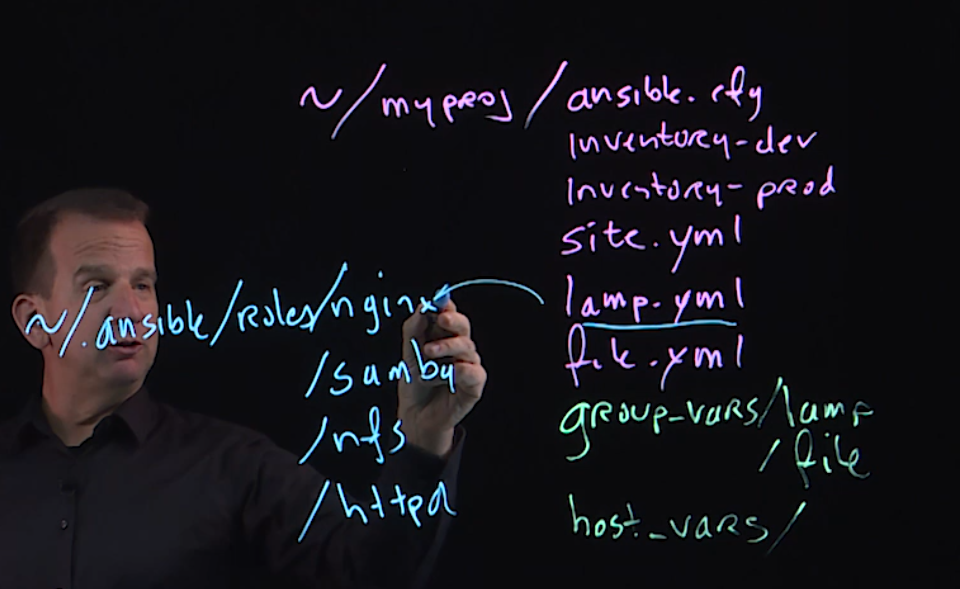 ~/myproj/ansible.cfg
inventory-dev
inventory-prod
site.yml
lamp.yml
file.yml
group_vars/lamp
/file
host_vars/
~/.ansible/roles/nginx
/samba
/nfs
/httpd